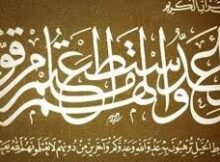 القرآن الكريم
وأعدوا لهم ما استطعتم من قوة
الخيل ترهبون به عدو الله وعدوكم وآخرين من دونهم لا تعلمونهم الله يعلمهم